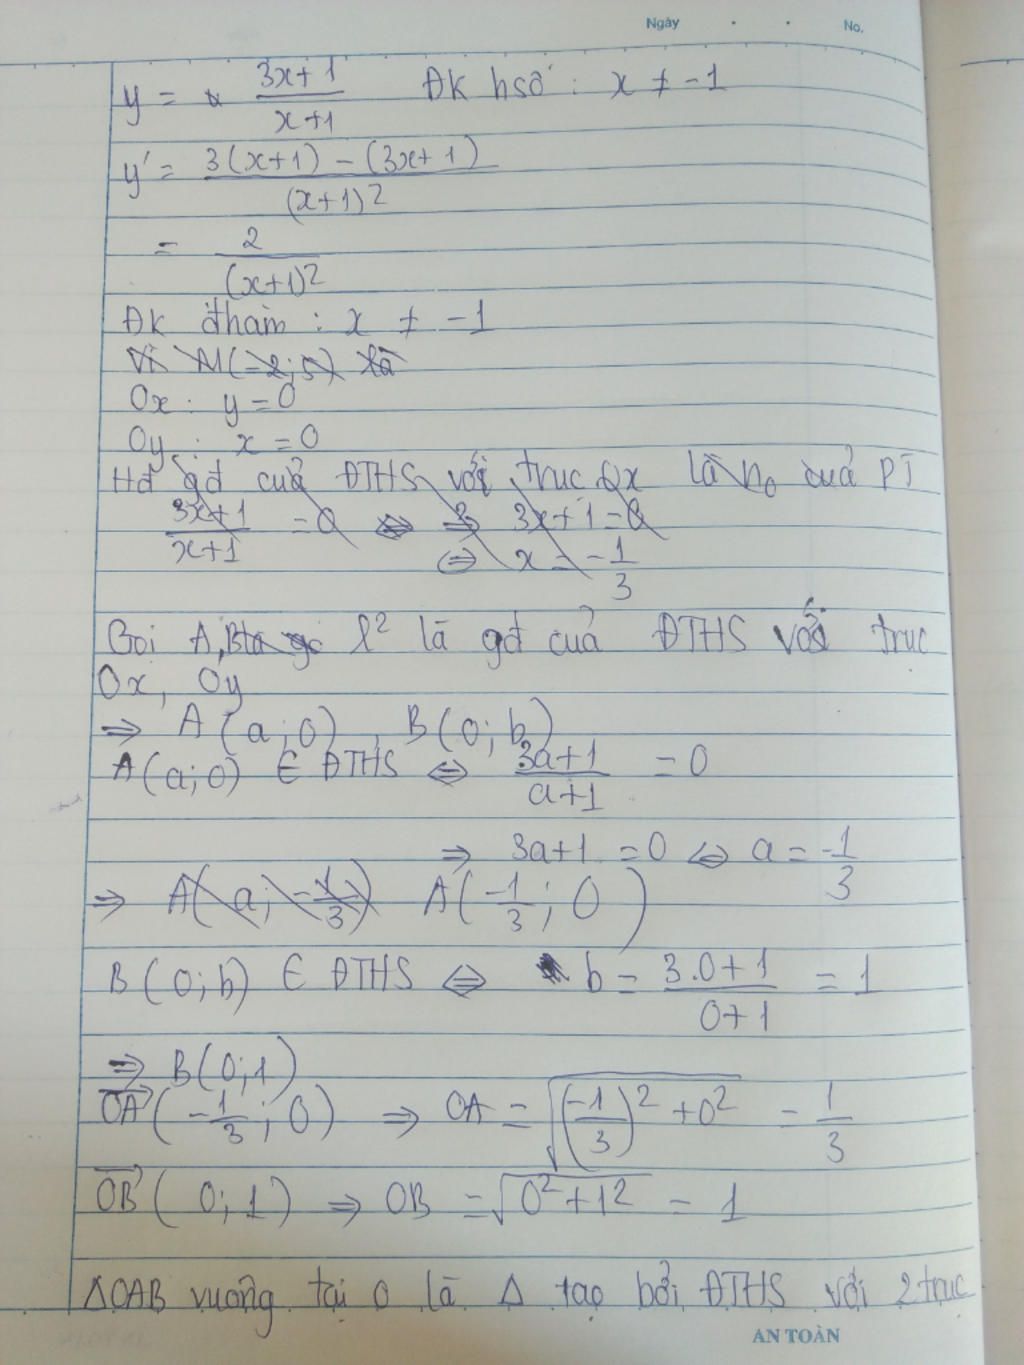 Ngày . . No.
y = 3x+1 / x+1 ĐK hsố : x ≠ -1
y' = 3(x+1) - (3x+1) / (x+1)2
= 2 / (x+1)2
ĐK đhàm : x ≠ -1
Vì M(-2;5) là
Ox : y = 0
Oy : x = 0
Hđ gđ cuả ĐTHS với trục Ox là no cuả PT
3x+1 / x+1 = 0 ⇔ 3x+1 = 0
⇔ x = -1/3
Gọi A,B l² là gđ cuả ĐTHS với trục
Ox, Oy
⇒ A (a;0) , B(0;b)
A(a;0) ∈ ĐTHS ⇔ 3a+1 / a+1 = 0
⇒ 3a+1 = 0 ⇔ a = -1/3
⇒ A(a; -1/3) A(-1/3 ; 0)
B(0;b) ∈ ĐTHS ⇔ b = 3.0+1 / 0+1 = 1
⇒ B(0;1)
OA (-1/3 ; 0) ⇒ OA = √((-1/3)² + 0²) = 1/3
OB ( 0; 1) ⇒ OB = √(0²+1²) = 1
ΔOAB vuông tại O là Δ tạo bởi ĐTHS với 2 trục
AN TOÀN